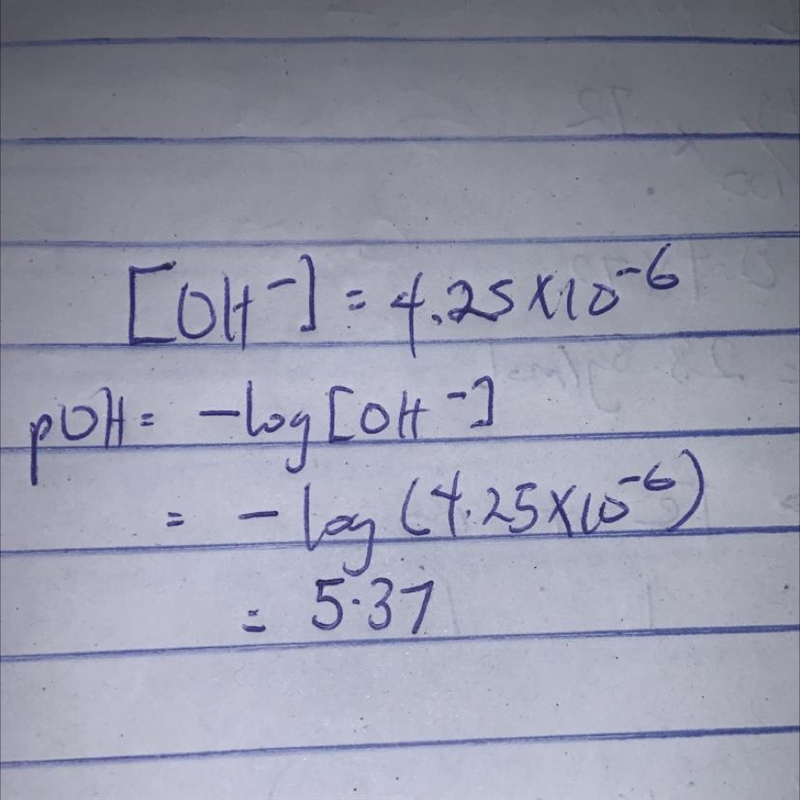 [OH⁻] = 4.25 × 10⁻⁶
pOH = -log [OH⁻]
= -log (4.25 × 10⁻⁶)
= 5.37